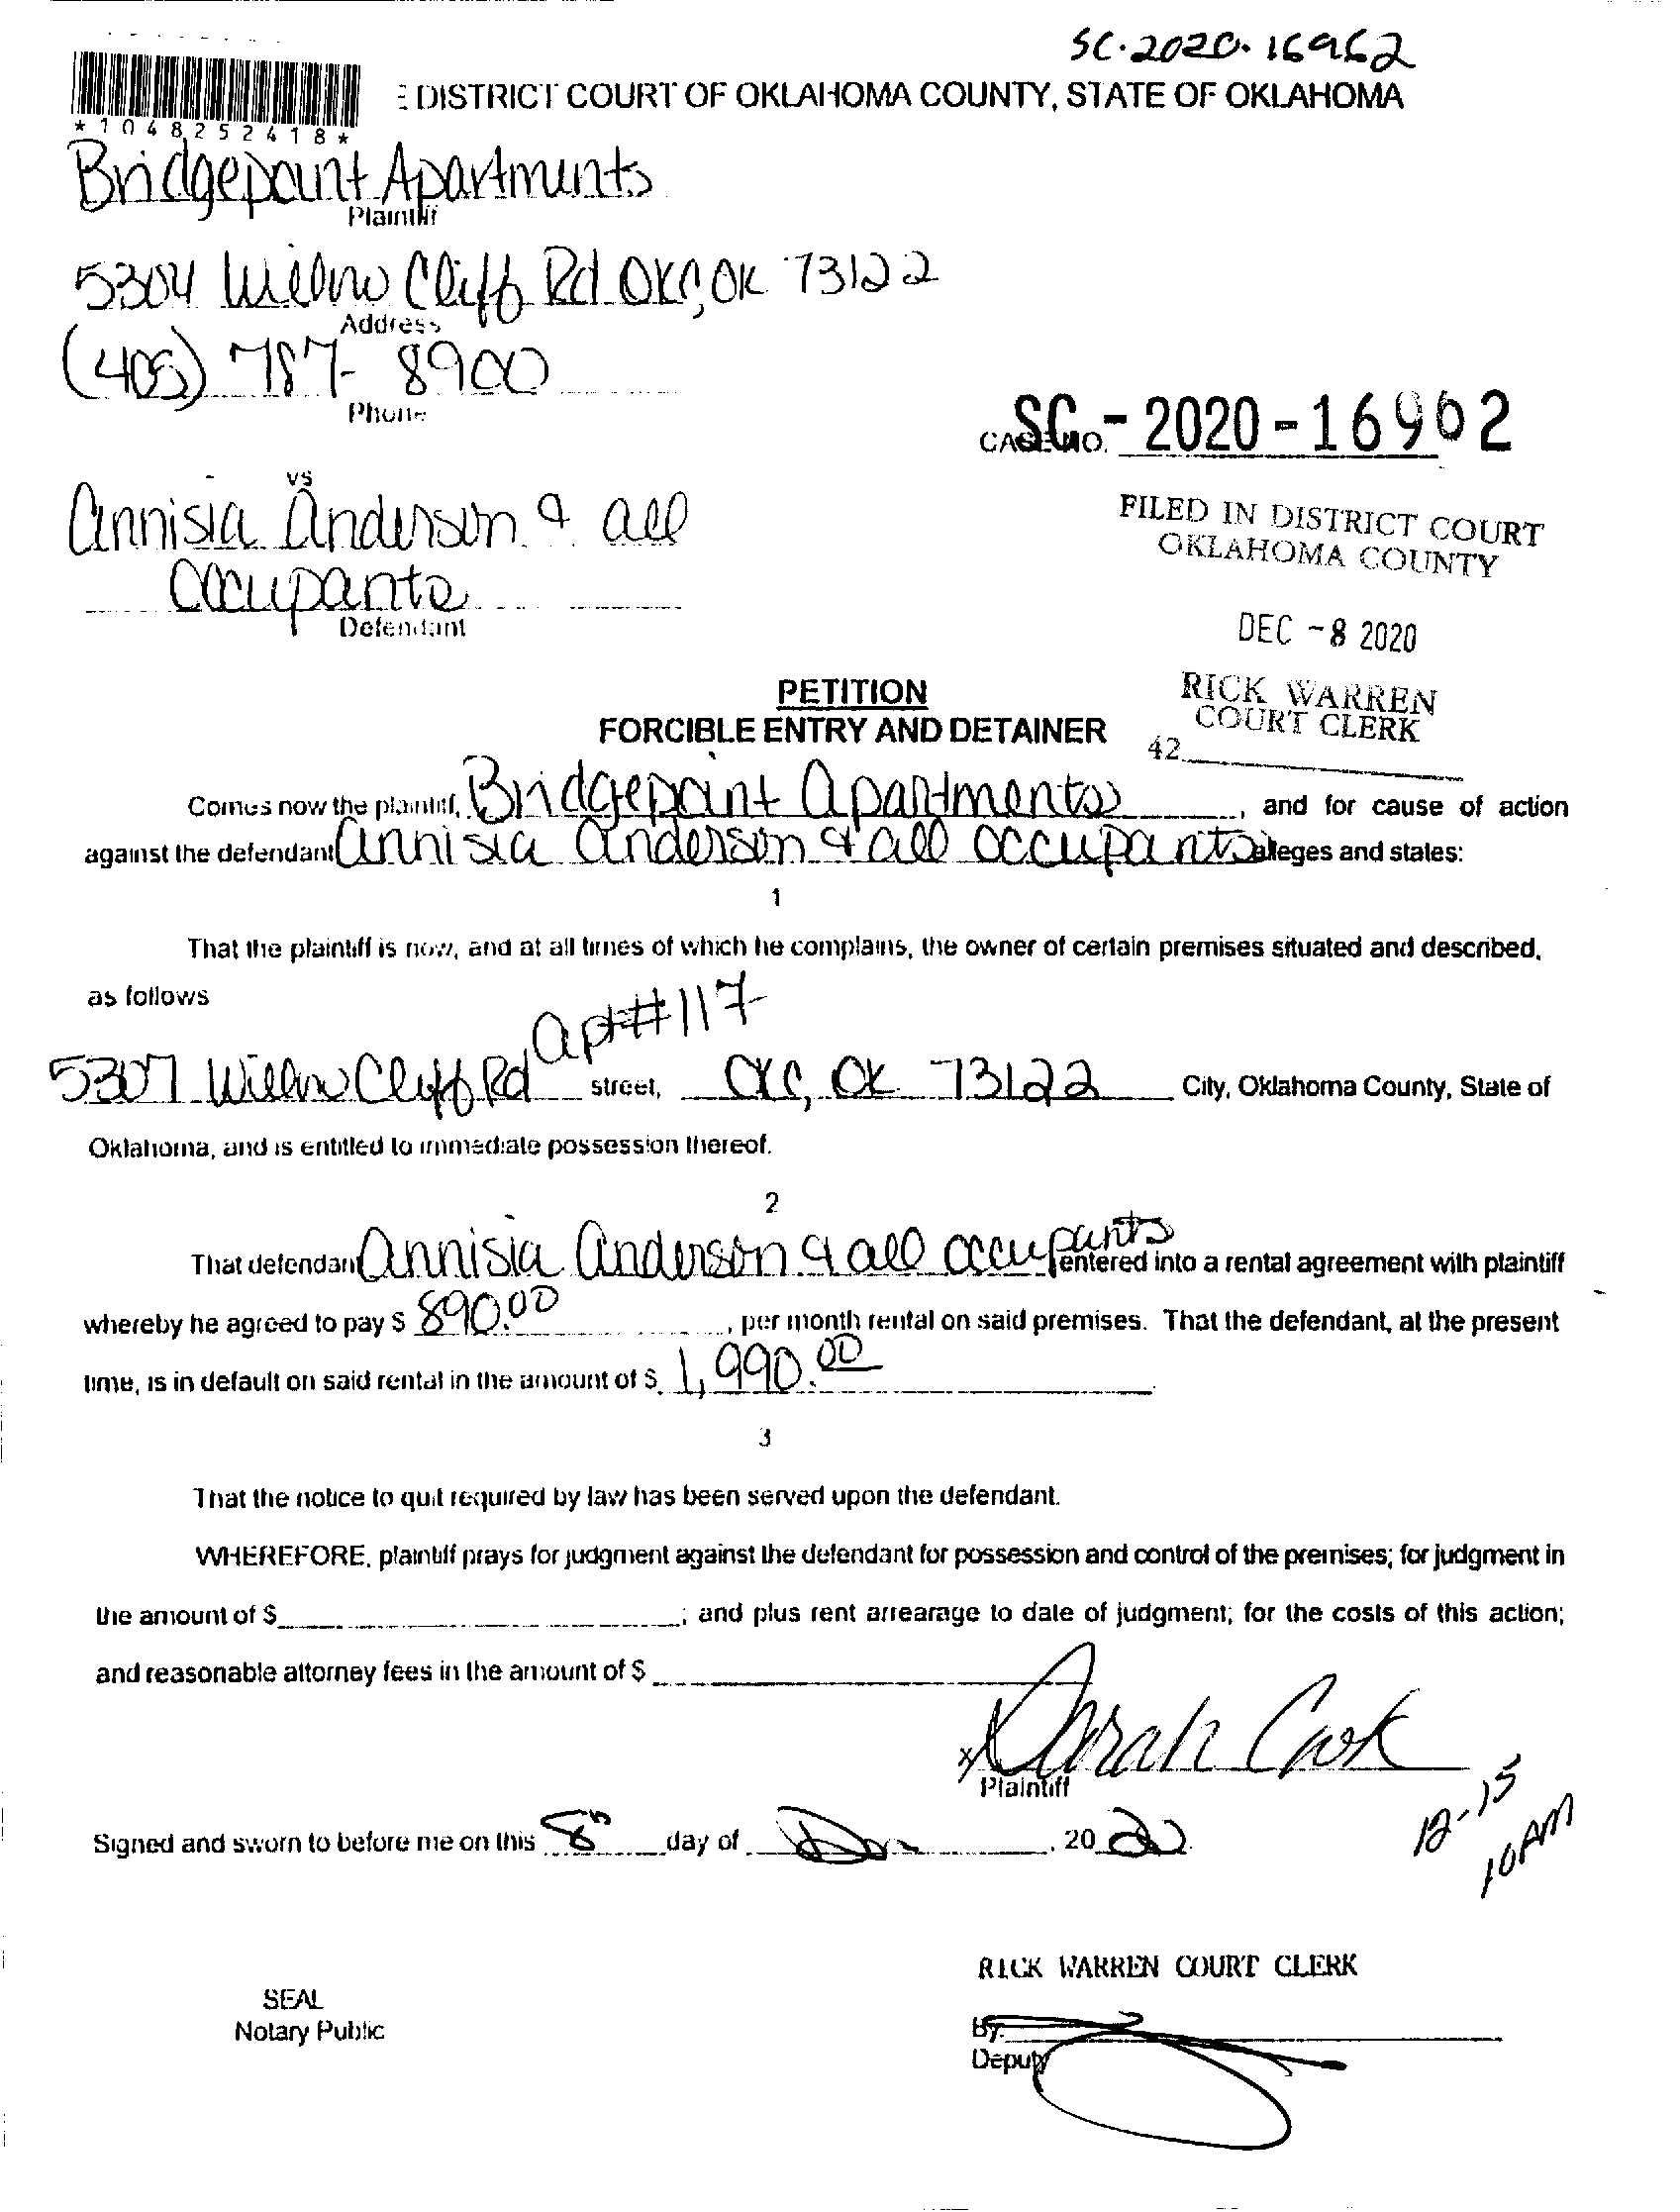 SC-2020-16962
*1048252418*
E DISTRICT COURT OF OKLAHOMA COUNTY, STATE OF OKLAHOMA
Bridgepoint Apartments
Plaintiff
5304 Willow Cliff Rd OKC, OK 73122
Address
(405) 787-8900
Phone
CASE NO. SC-2020-16962
vs
Annisia Anderson & all
Occupants
Defendant
FILED IN DISTRICT COURT
OKLAHOMA COUNTY
DEC -8 2020
RICK WARREN
COURT CLERK
42
PETITION
FORCIBLE ENTRY AND DETAINER
Comes now the plaintiff, Bridgepoint Apartments, and for cause of action
against the defendant Annisia Anderson & all occupants alleges and states:
1
That the plaintiff is now, and at all times of which he complains, the owner of certain premises situated and described,
as follows
apt #117
5307 Willow Cliff Rd street, OKC, OK 73122 City, Oklahoma County, State of
Oklahoma, and is entitled to immediate possession thereof.
2
That defendant Annisia Anderson & all occupants entered into a rental agreement with plaintiff
whereby he agreed to pay $ 890.00, per month rental on said premises. That the defendant, at the present
time, is in default on said rental in the amount of $ 1,990.00
3
That the notice to quit required by law has been served upon the defendant.
WHEREFORE, plaintiff prays for judgment against the defendant for possession and control of the premises; for judgment in
the amount of $ ; and plus rent arrearage to date of judgment; for the costs of this action;
and reasonable attorney fees in the amount of $
x
Plaintiff
12-15
10 AM
Signed and sworn to before me on this 8th day of Dec, 2020.
RICK WARREN COURT CLERK
SEAL
Notary Public
By:
Deputy